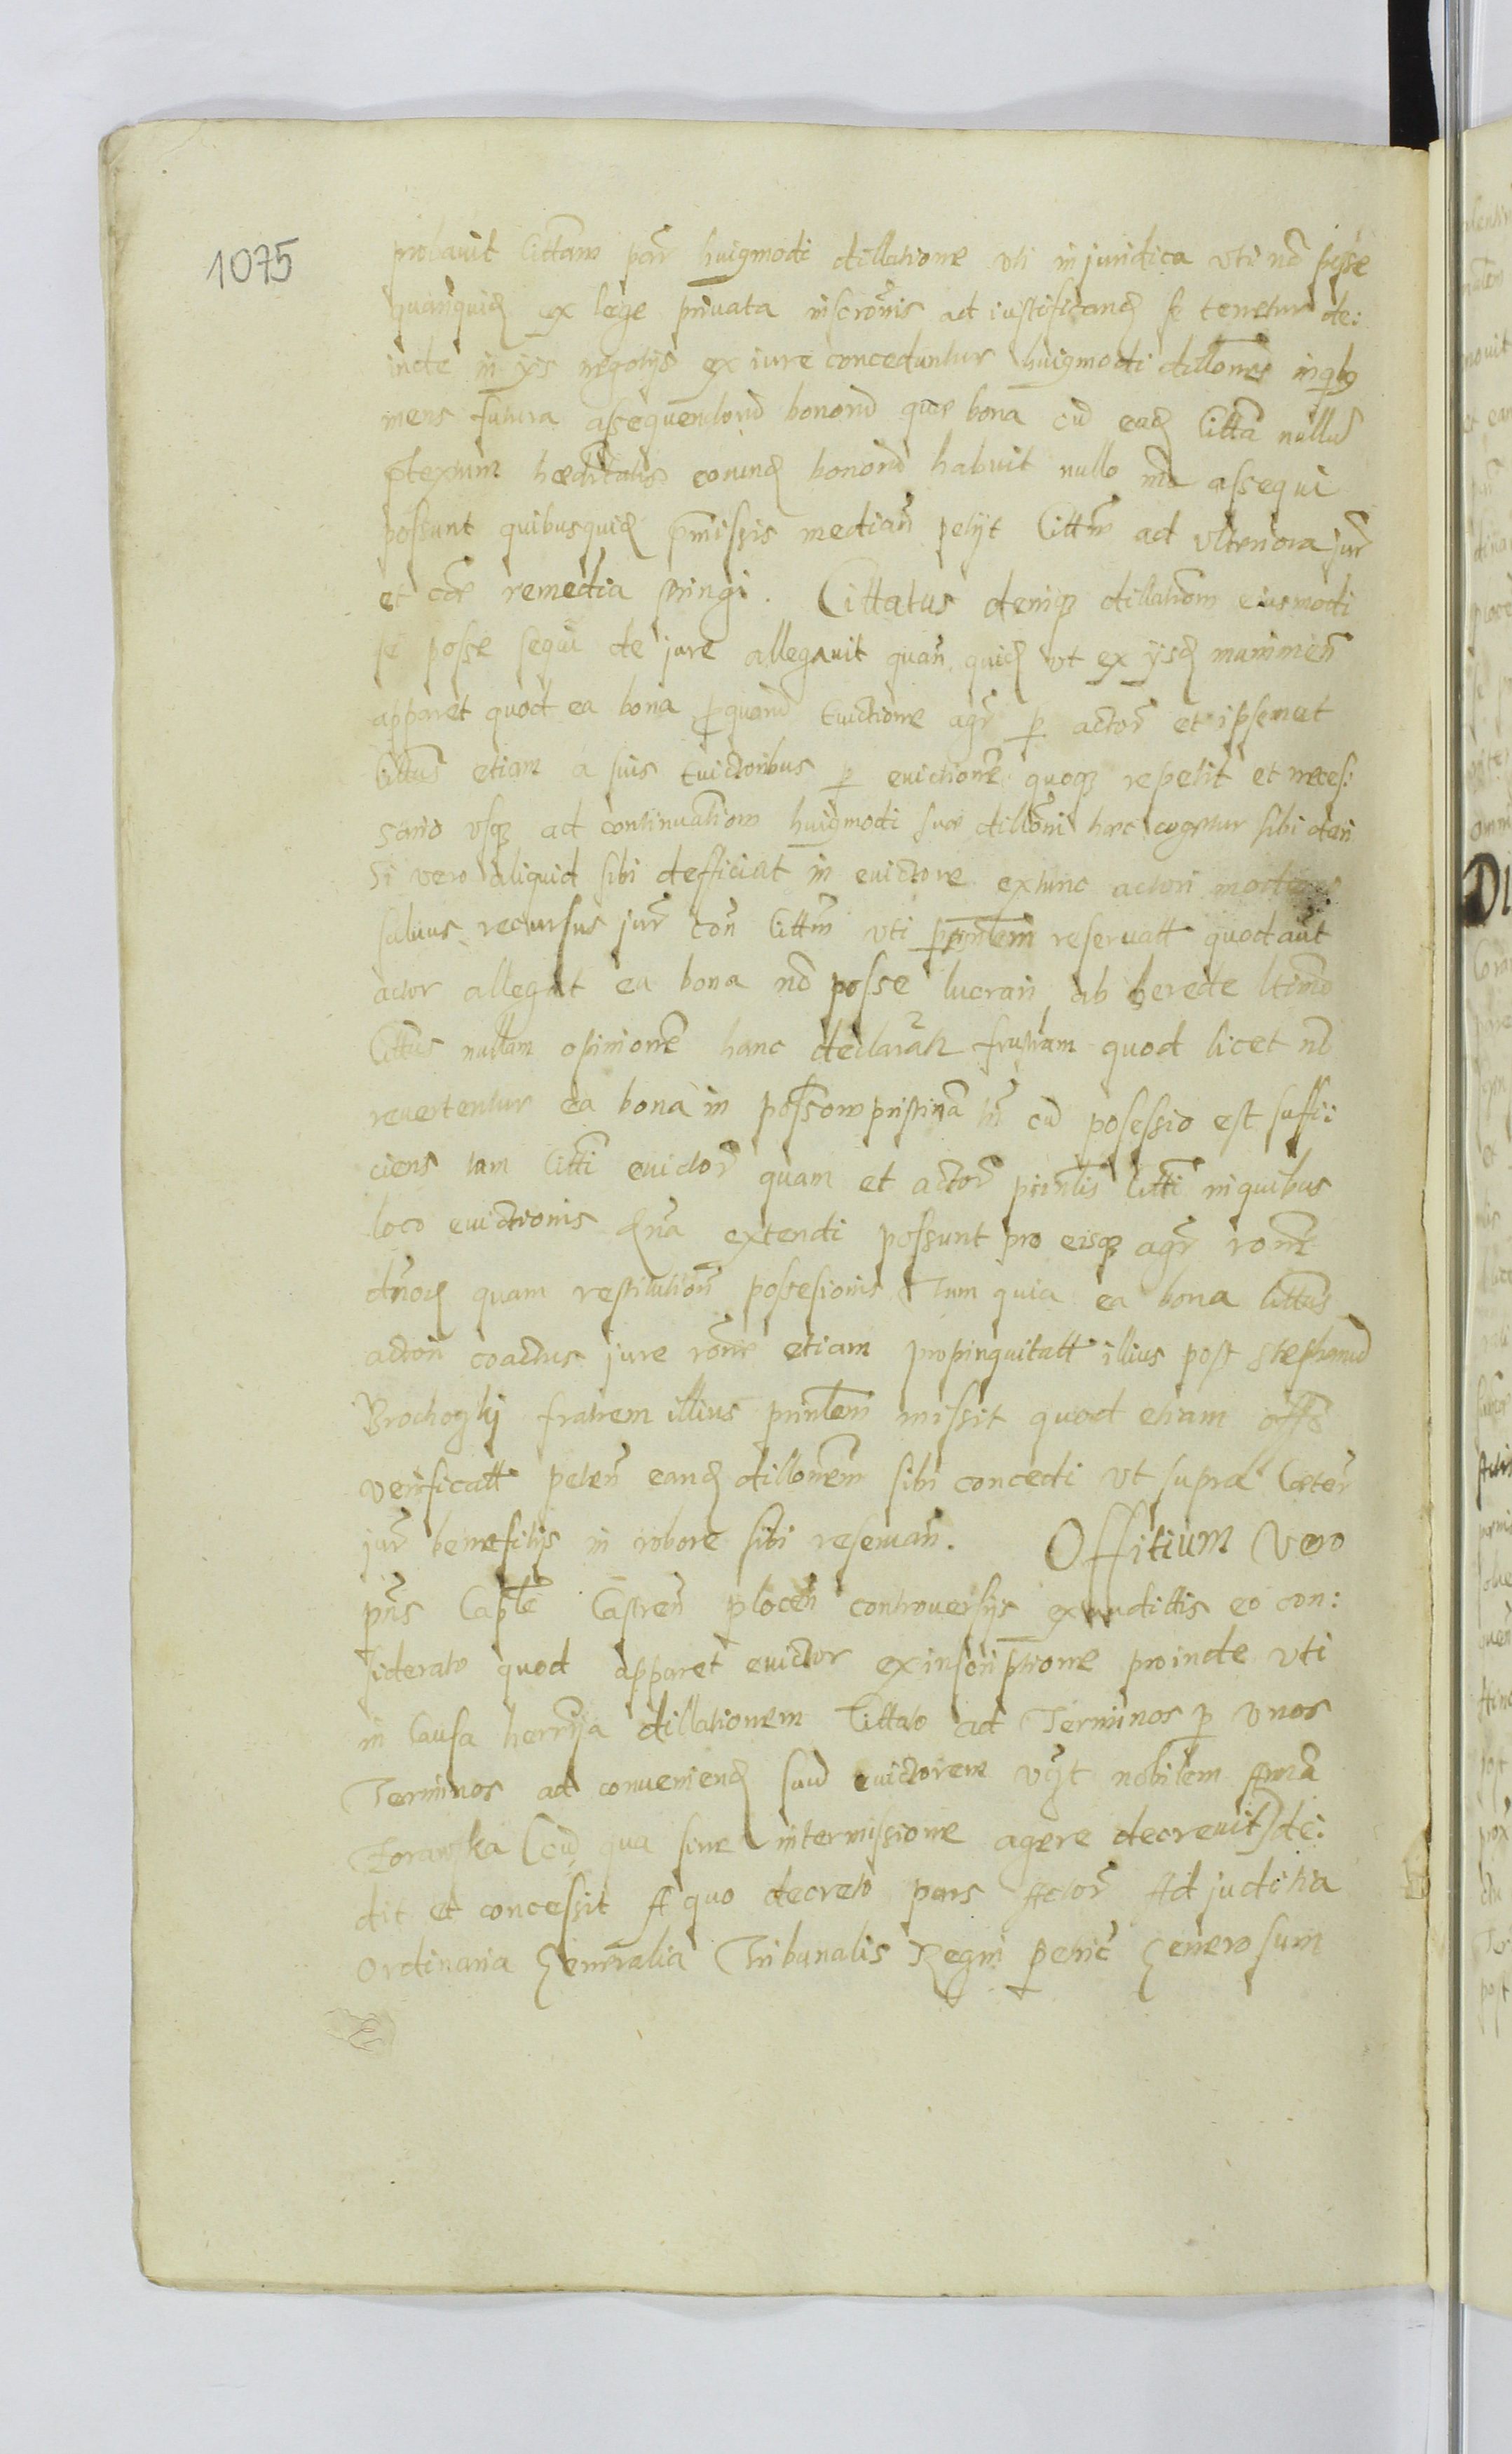 1075
probauit Cittam par huigmodi dillatione uti injuridica uti nō posse
quanquid ex lege priuata inscronis ad iustificand se tenetur de:
inde in ijs negotijs ex iure conceduntur huigmodi dillones inqbg
mens futura assequendorū bonorū quae bona cū ead Citta nullū
ptextum hoeditatis eorund bonorū habuit nullo mō assequi
possunt quibusquid pmissis median petijt Cittm ad ulteriora jur
et cae remedia stringi. Cittatus deniq dillatiom eiusmodi
se posse sequi de jure allegauit quan quid ut ex ijsd munimen
apparet quod ea bona pquorū Euictione agr p actor et ipsemet
Cittus etiam a suis Euictoribus p euictione quoq repetit et neces:
sario usq ad continuatiom huigmodi suae dilloni hac cogetur sibi dari
Si vero aliquid sibi defficiet in euictore extunc actori
saluus recursus jur con Cittm uti reseruatt quod aut
actor allegat ea bona nō posse lucrari ab herede ltimo
Cittus nullam opinione hanc declaratt frustram quod licet nō
reuertentur ea bona in possom pristina tn cū posessio est suffi:
ciens tam Citti euictor quam et actor Citti inquibus
loco euictionis extendi possunt pro eisq agr rone
quam restitution possesionis Tum quia ea bona Cittus
actori coactus jure rone etiam propinquitatt illius post Stephanū
Brochoczky fratrem illius missit quod etiam offo
verificatt peten eand dillonem sibi concedi ut supra Caeter
jur benefitijs in robore sibi reseruan. Offitium vero
pns Captle Castren plocen controuersijs exaudittis eo con:
siderato quod apparet euictor ex inscriptione proinde uti
in Causa terrija dillationem Cittato ad Terminos p unos
Terminos ad conueniend suū euictorem vgt nobilem Anna
Zorawska (cū qua sine intermissione agere decreuit) de:
dit et concessit A quo decreto pars Actor Ad juditia
Ordinaria Generalia Tribunalis Regni petric Generosum